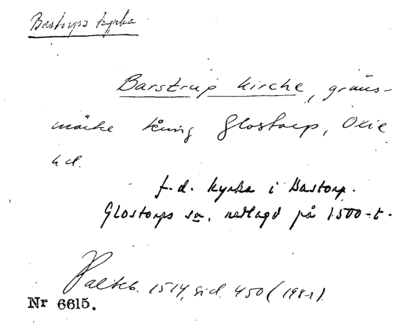 Bastrups kyrka
Barstrup kirche, gräns-
märke kring Glostorp, Oxie
hd.
f.d. kyrka i Bastorp.
Glostorps sn, nedlagd på 1500-t.
Palteb. 1514, sid. 450 (198r).
Nr 6615.